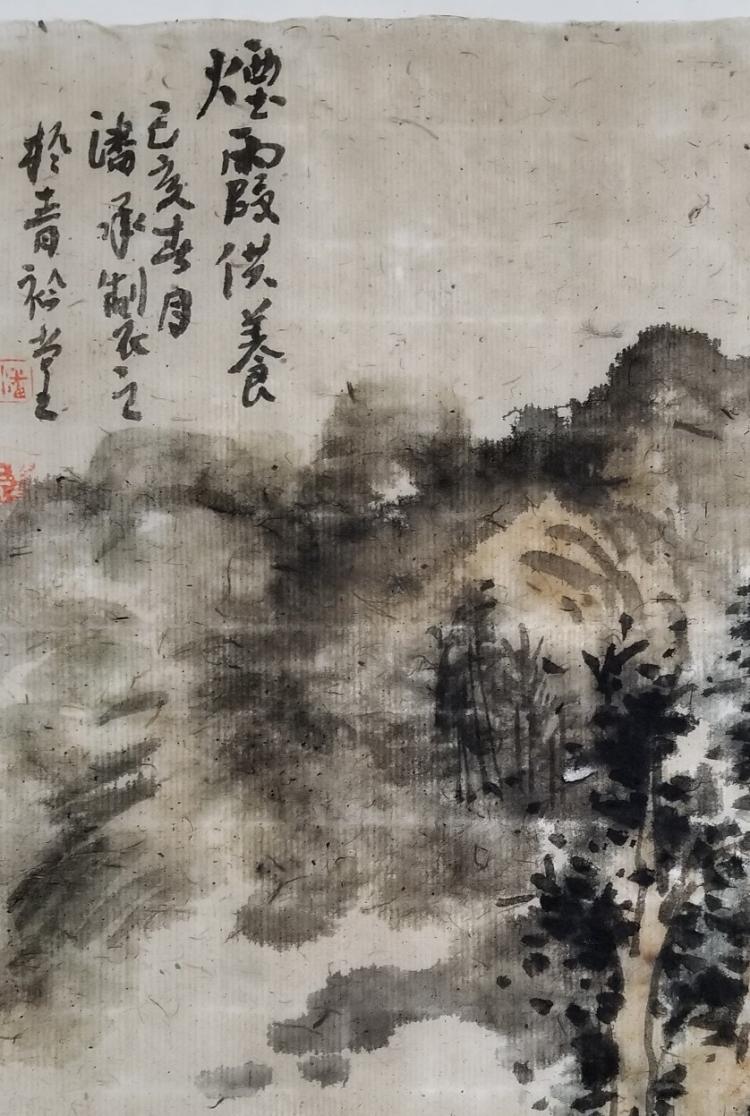 煙霞供養
己亥春月
潘承制之
於青堂
潘